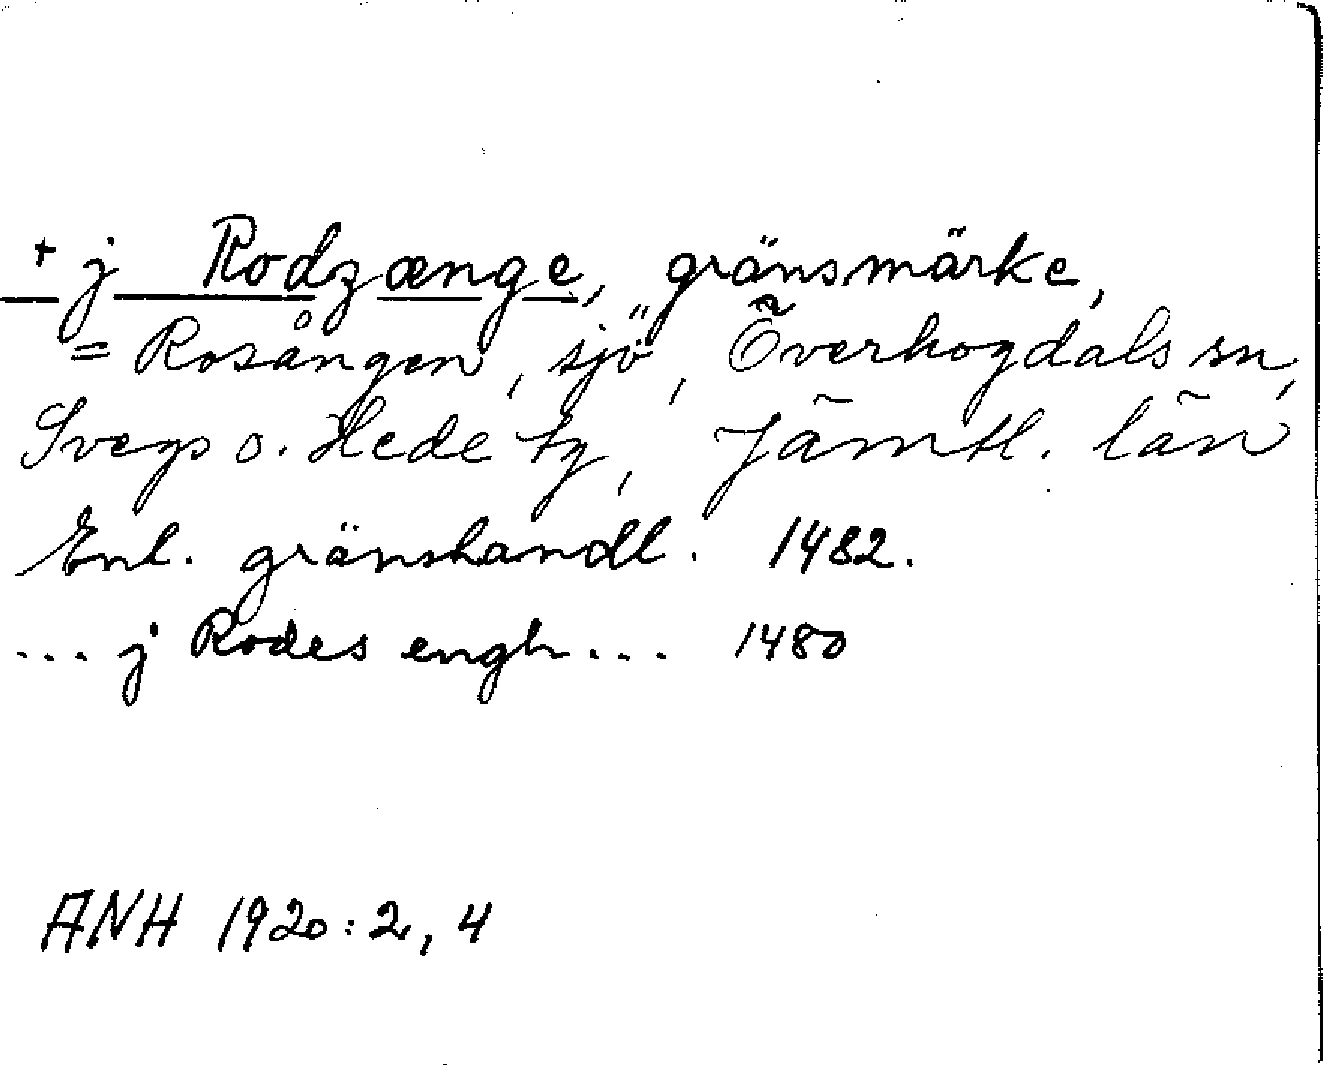 + j Rodzænge, gränsmärke,
= Rosången, sjö, Överhogdals sn,
Svegs o. Hede tg, Jämtl. län
Enl. gränshandl. 1482.
... j Rodes engh ... 1480
ANH 1920:2, 4